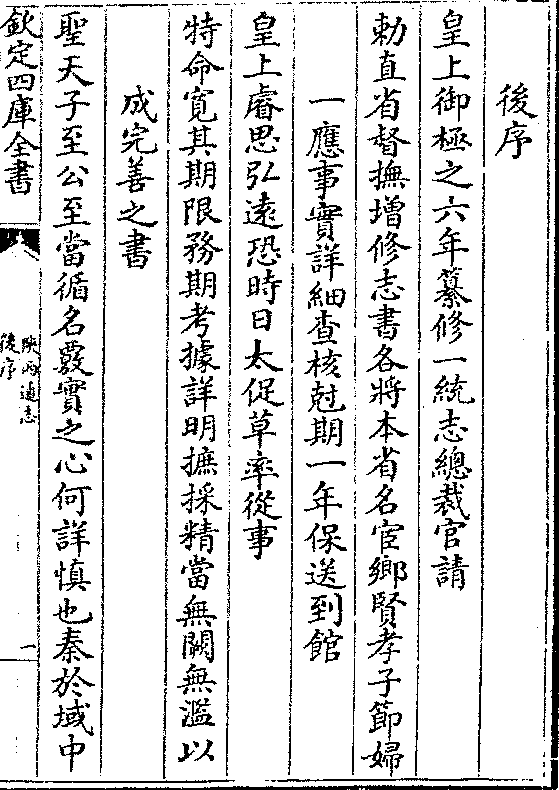 後序
皇上御極之六年纂修一統志總裁官請
勅直省督撫增修志書各將本省名宦鄉賢孝子節婦
一應事實詳細查核尅期一年保送到館
皇上睿思弘遠恐時日太促草率從事
特命寛其期限務期考據詳明摭採精當無闕無濫以
成完善之書
聖天子至公至當循名覈實之心何詳慎也秦於域中
欽定四庫全書
陝西通志
後序
一